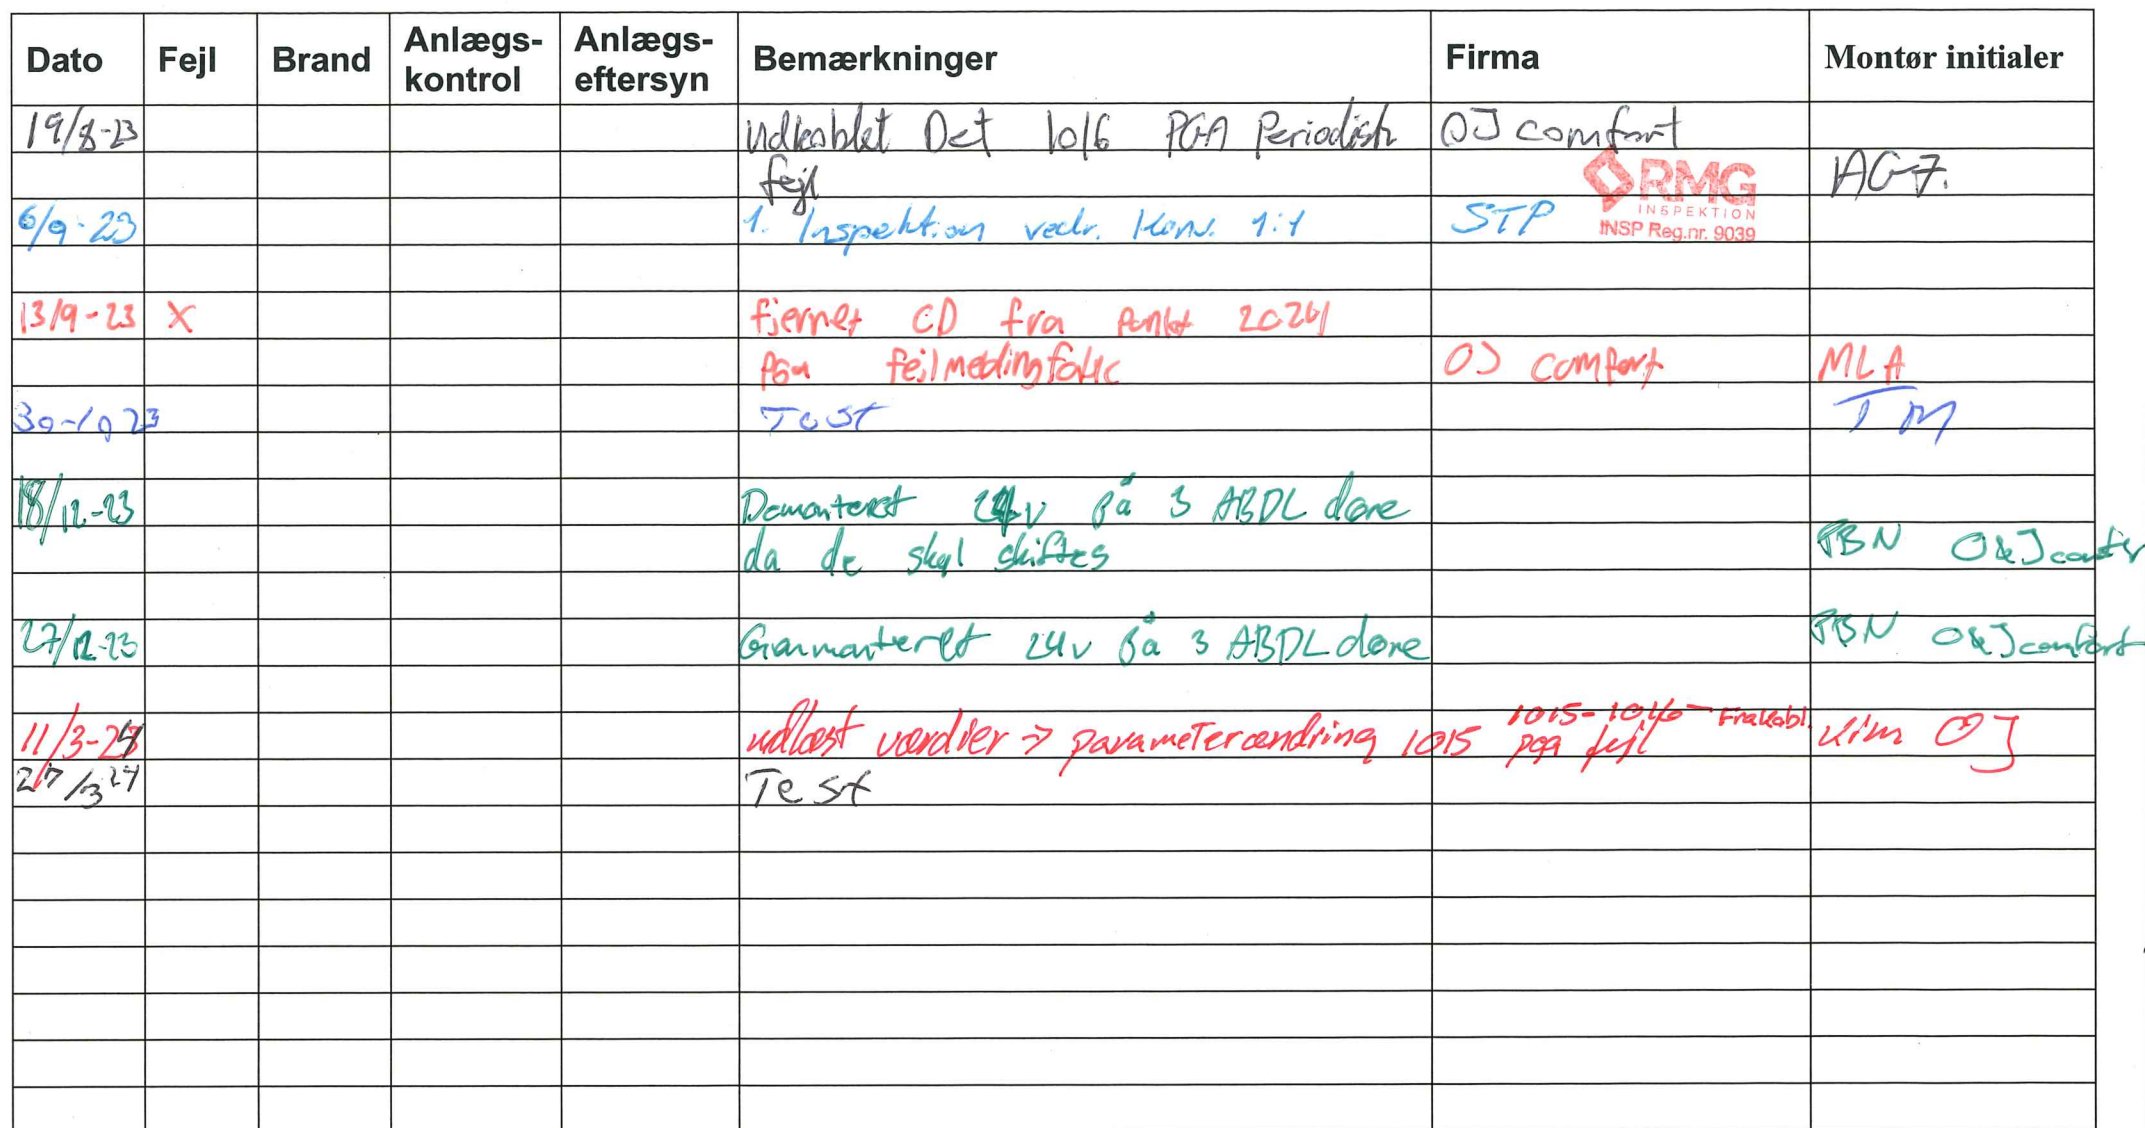 Dato Fejl Brand Anlægs-kontrol Anlægs-eftersyn Bemærkninger Firma Montør initialer
19/8-23 Udkoblet Det 1016 PGA Periodisk OJ comfort
fejl AG7.
RMG
INSPEKTION
INSP Reg.nr. 9039
6/9-23 1. Inspektion vedr. Konv. 1:1 STP
13/9-23 X fjernet CD fra Punkt 2024
PGa OJ comfort MLA
30-10 23 Test TM
18/12-23 Demonteret 24v på 3 ABDL døre
da de skal skiftes PBN O&J
27/12-23 24v på 3 ABDL døre PBN O&J comfort
1015-1016 - Frakobl.
11/3-24 udlæst værdier → parameterændring 1015 pga fejl Kim OJ
27/3 24 Test